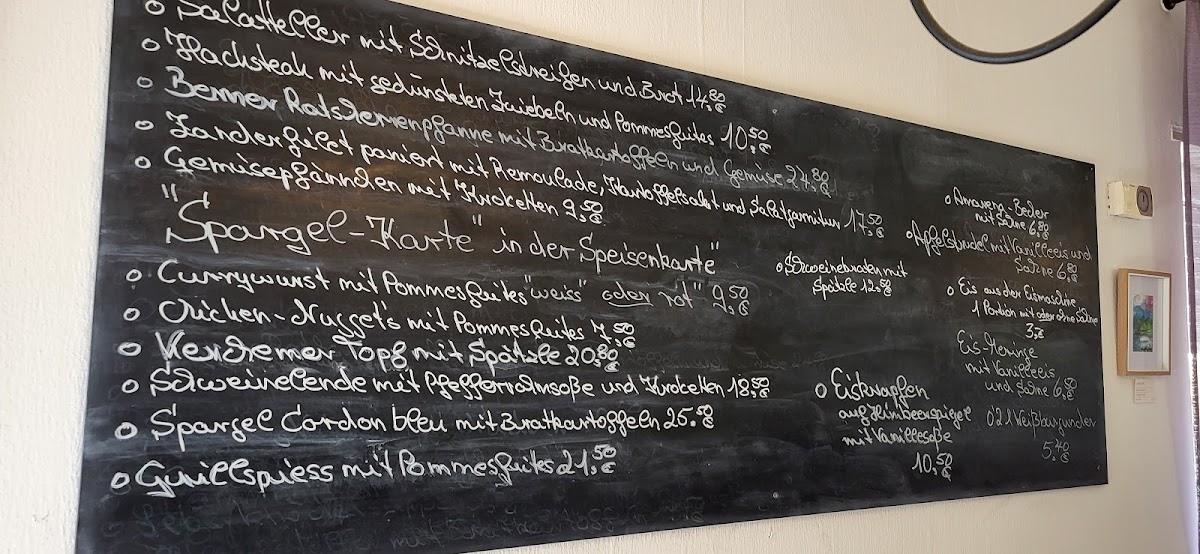 o Salatteller mit Schnitzelstreifen und Brot 14,80 €
o Hacksteak mit gedünsteten Zwiebeln und Pommesfrites 10,50 €
o Berner Ratsherrenpfanne mit Bratkartoffeln und Gemüse 24,80 €
o Zanderfilet paniert mit Remoulade, Kartoffelsalat und Salatgarnitur 17,50 €
o Gemüsepfännchen mit Kroketten 9,50 €
"Spargel-Karte" in der Speisenkarte"
o Currywurst mit Pommesfrites "weiss" oder "rot" 9,50 €
o Chicken-Nuggets mit Pommesfrites 7,50 €
o Topf mit Spätzle 20,80 €
o Schweinelende mit Pfefferrahmsoße und Kroketten 18,50 €
o Spargel Cordon bleu mit Bratkartoffeln 25,50 €
o Grillspiess mit Pommesfrites 21,50 €
o Schweinebraten mit
Spätzle 12,50 €
o Eiskrapfen
auf Himbeerspiegel
mit Vanillesoße
10,50 €
o Amarena-Becher
mit Sahne 6,80 €
o Apfelstrudel mit Vanilleeis und
Sahne 6,80 €
o Eis aus der Eismaschine
1 Portion mit oder ohne Sahne
3,- €
Eis-Meringe
mit Vanilleeis
und Sahne 6,50 €
0,2 l Weißburgunder
5,40 €